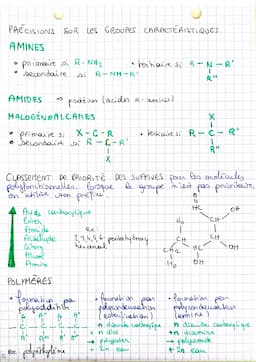 PRÉCISIONS SUR LES GROUPES CARACTÉRISTIQUES
AMINES
• primaire si R-NH₂ • tertiaire si R-N-R'
• secondaire si R-NH-R' R"
AMIDES → protéine (acides α-aminés)
HALOGÉNOALCANES
X
• primaire si X-C-R • tertiaire si R-C-R'
• secondaire si R-C-R' R"
X
CLASSEMENT DE PRIORITÉ DES SUFFIXES pour les molécules
polyfonctionnelles. Lorsque le groupe n'est pas prioritaire,
on utilise un préfixe.
Acide carboxylique
Ester
Amide
Aldéhyde
Alcool
Amine
ex:
2,3,4,5,6-pentahydroxy
hexanal
O
HC OH
HO CH
CH CH
CH₂ HC OH
HO OH
POLYMÈRES
• formation par • formation par • formation par
polyaddition polycondensation polycondensation
(estérification) (amine)
n diacide carboxylique n diacide carboxylique
+ n +n
→ polyester → polyamide
+ 2n eau + 2n eau
ex polyéthylène